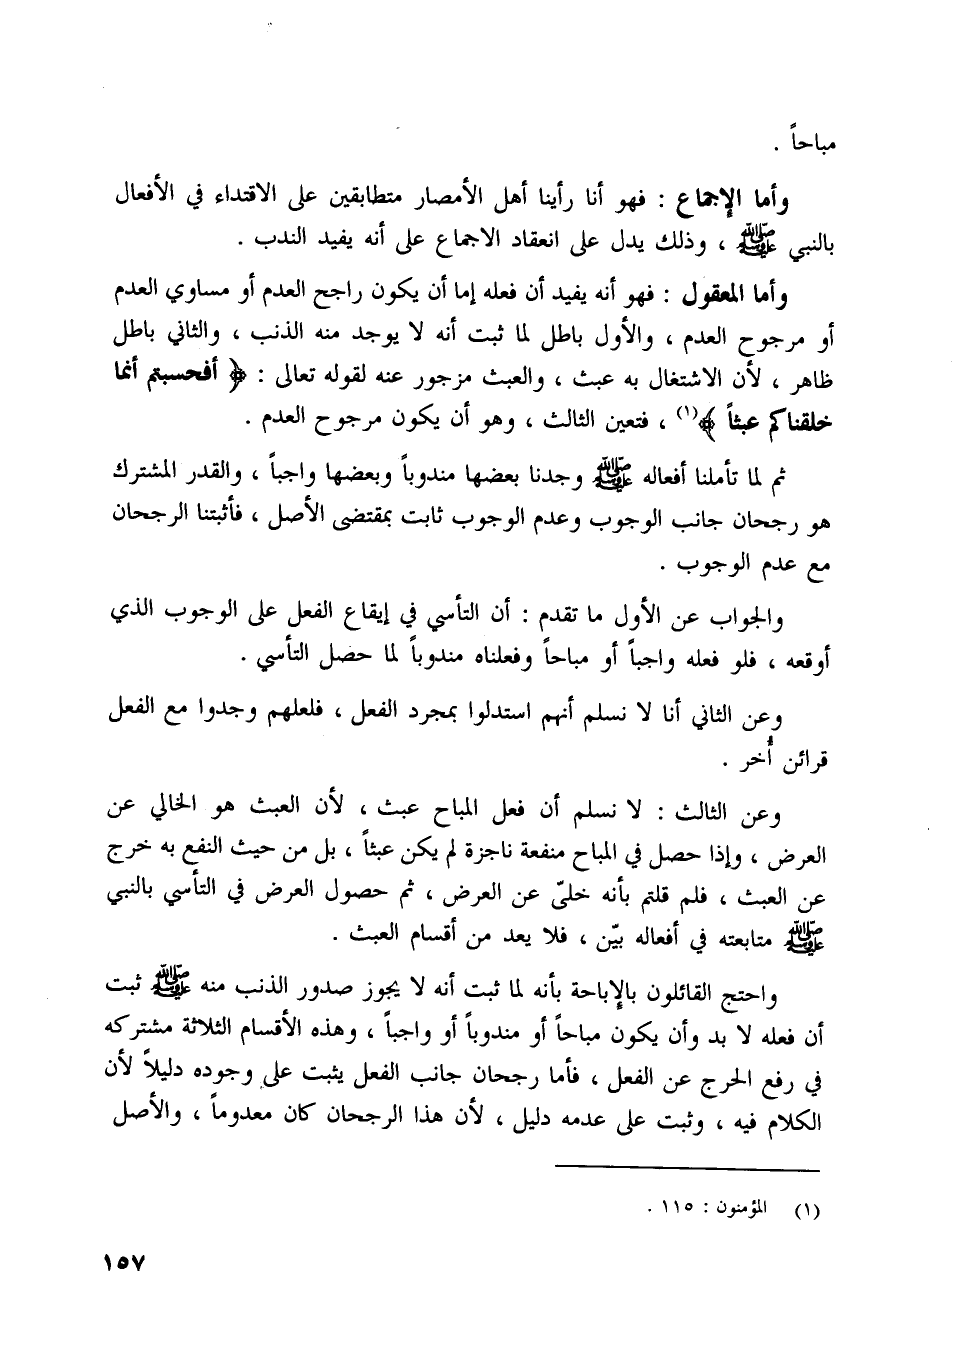 مباحاً .
وأما الإجماع : فهو أنا رأينا أهل الأمصار متطابقين على الاقتداء في الأفعال
بالنبي ﷺ ، وذلك يدل على انعقاد الاجماع على أنه يفيد الندب .
وأما المعقول : فهو أنه يفيد أن فعله إما أن يكون راجح العدم أو مساوي العدم
أو مرجوح العدم ، والأول باطل لما ثبت أنه لا يوجد منه الذنب ، والثاني باطل
ظاهر ، لأن الاشتغال به عبث ، والعبث مزجور عنه لقوله تعالى : ﴿ أفحسبتم أنما
خلقناكم عبثاً ﴾(١) ، فتعين الثالث ، وهو أن يكون مرجوح العدم .
ثم لما تأملنا أفعاله ﷺ وجدنا بعضها مندوباً وبعضها واجباً ، والقدر المشترك
هو رجحان جانب الوجوب وعدم الوجوب ثابت بمقتضى الأصل ، فأثبتنا الرجحان
مع عدم الوجوب .
والجواب عن الأول ما تقدم : أن التأسي في إيقاع الفعل على الوجوب الذي
أوقعه ، فلو فعله واجباً أو مباحاً وفعلناه مندوباً لما حصل التأسي .
وعن الثاني أنا لا نسلم أنهم استدلوا بمجرد الفعل ، فلعلهم وجدوا مع الفعل
قرائن أُخر .
وعن الثالث : لا نسلم أن فعل المباح عبث ، لأن العبث هو الخالي عن
العرض ، وإذا حصل في المباح منفعة ناجزة لم يكن عبثاً ، بل من حيث النفع به خرج
عن العبث ، فلم قلتم بأنه خليّ عن العرض ، ثم حصول العرض في التأسي بالنبي
ﷺ متابعته في أفعاله بيّن ، فلا يعد من أقسام العبث .
واحتج القائلون بالإباحة بأنه لما ثبت أنه لا يجوز صدور الذنب منه ﷺ ثبت
أن فعله لا بد وأن يكون مباحاً أو مندوباً أو واجباً ، وهذه الأقسام الثلاثة مشتركه
في رفع الحرج عن الفعل ، فأما رجحان جانب الفعل يثبت على وجوده دليلاً لأن
الكلام فيه ، وثبت على عدمه دليل ، لأن هذا الرجحان كان معدوماً ، والأصل
(١) المؤمنون : ١١٥ .
١٥٧